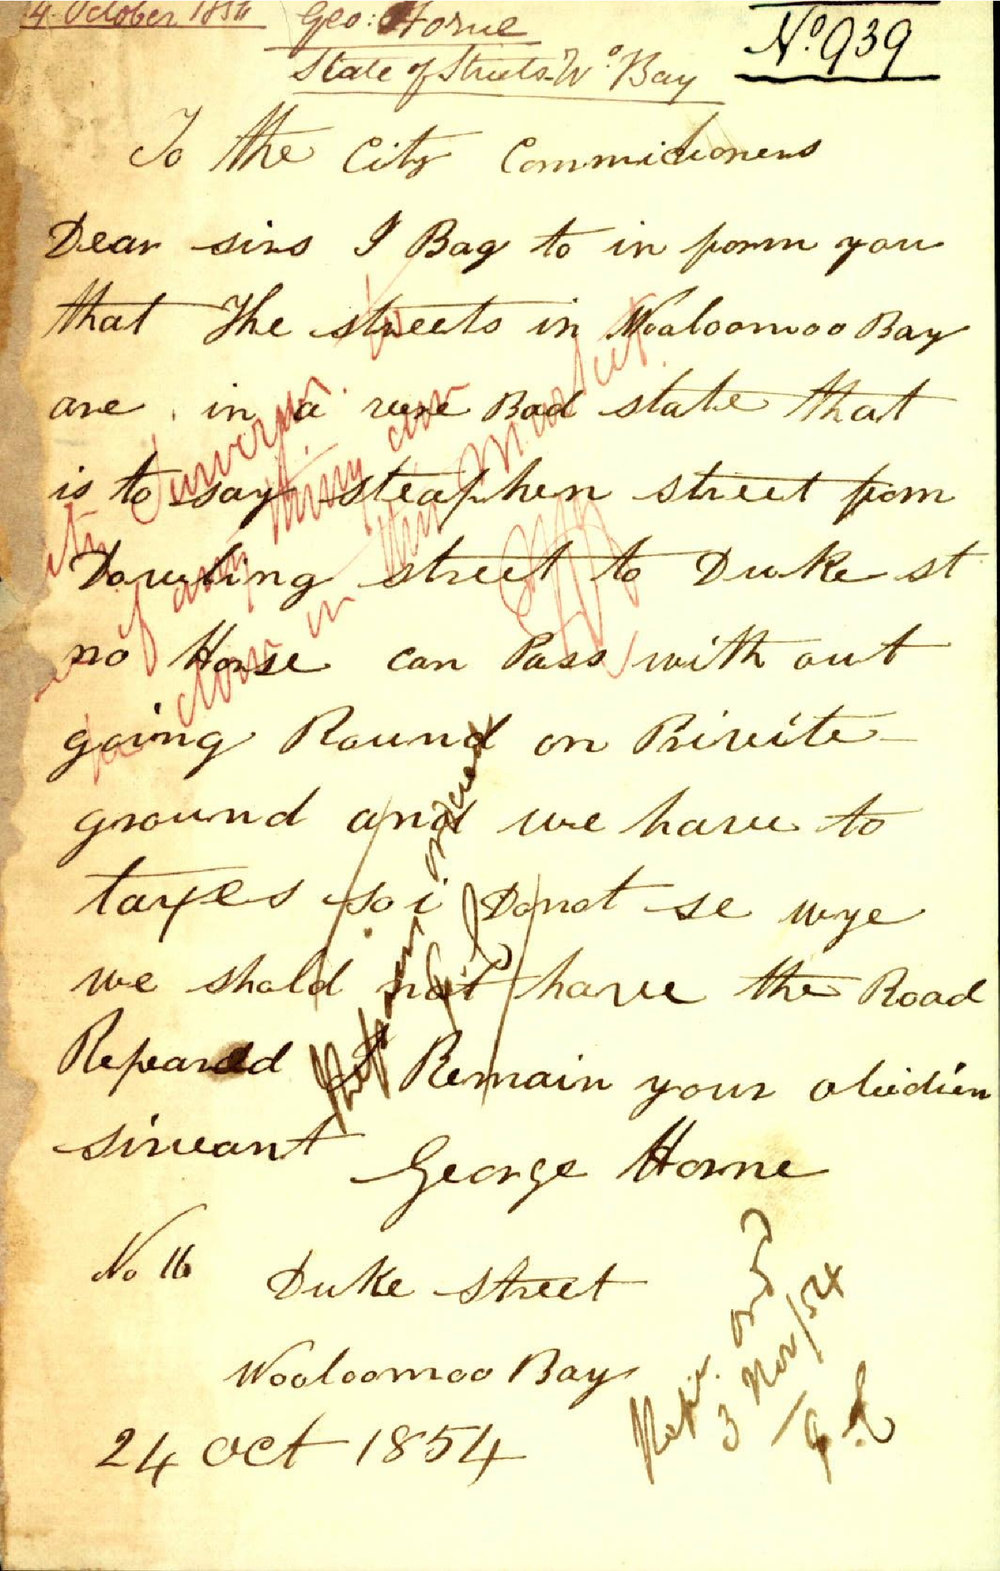 4 October 1854
Geo: Horne
State of Streets Wo. Bay
No. 939
To the City Commicioners
Dear sirs I Bag to in form you
that The streets in Wooloomoo Bay
are in a vere Bad state that
is to say steaphen street from
Dowrling street to Duke st
no Horse can Pass with out
going Round on Privite
ground and we have to
taxes so i Donot se wye
we shold not have the Road
Repeared I Remain your obidien
sirveant George Horne
No 16 Duke street
Wooloomoo Bay
24 Oct 1854
City Surveyor.
if any thing can
be done in this
Repair ordered
Repr. ordd
3 Nov/54